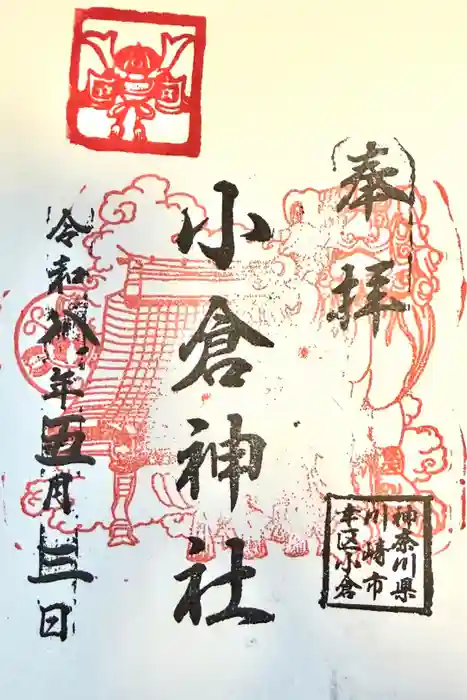 奉拝
神奈川県
川崎市
幸区小倉
小倉神社
令和年五月三日